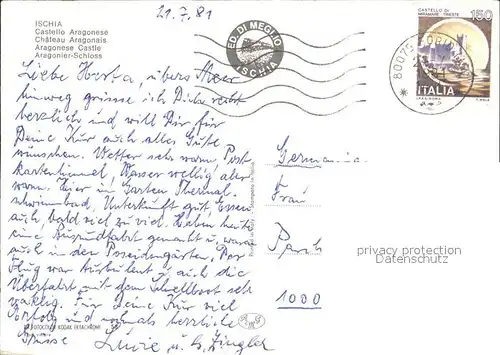 21.7.81
ISCHIA
Castello Aragonese
Château Aragonais
Aragonese Castle
Aragonier-Schloss
ED. DI MEGLIO
ISCHIA
CASTELLO DI
MIRAMARE TRIESTE
150
80075 FORIO
ITALIA
Liebe Herta, übers Meer
hinweg grüsse ich Dich recht
herzlich und will Dir für
Deine Kur auch alles Gute
wünschen. Wetter sehr warm, Post-
kartenhimmel, Wasser wellig aber
warm. Hier im Garten Thermal-
schwimmbad, Unterkunft gut, Essen
auch, bald viel zu viel. Haben heute
eine Inselrundfahrt gemacht u. waren
auch in den Poseidongärten. Der
Flug war turbulent u. auch die
Überfahrt mit dem Schnellboot sehr
zackig. Für Deine Kur viel
Erfolg und nochmals herzliche
Grüsse Lucie u.
Germania
Frau
1000
privacy protection
Datenschutz
FOTOCOLOR KODAK EKTACHROME